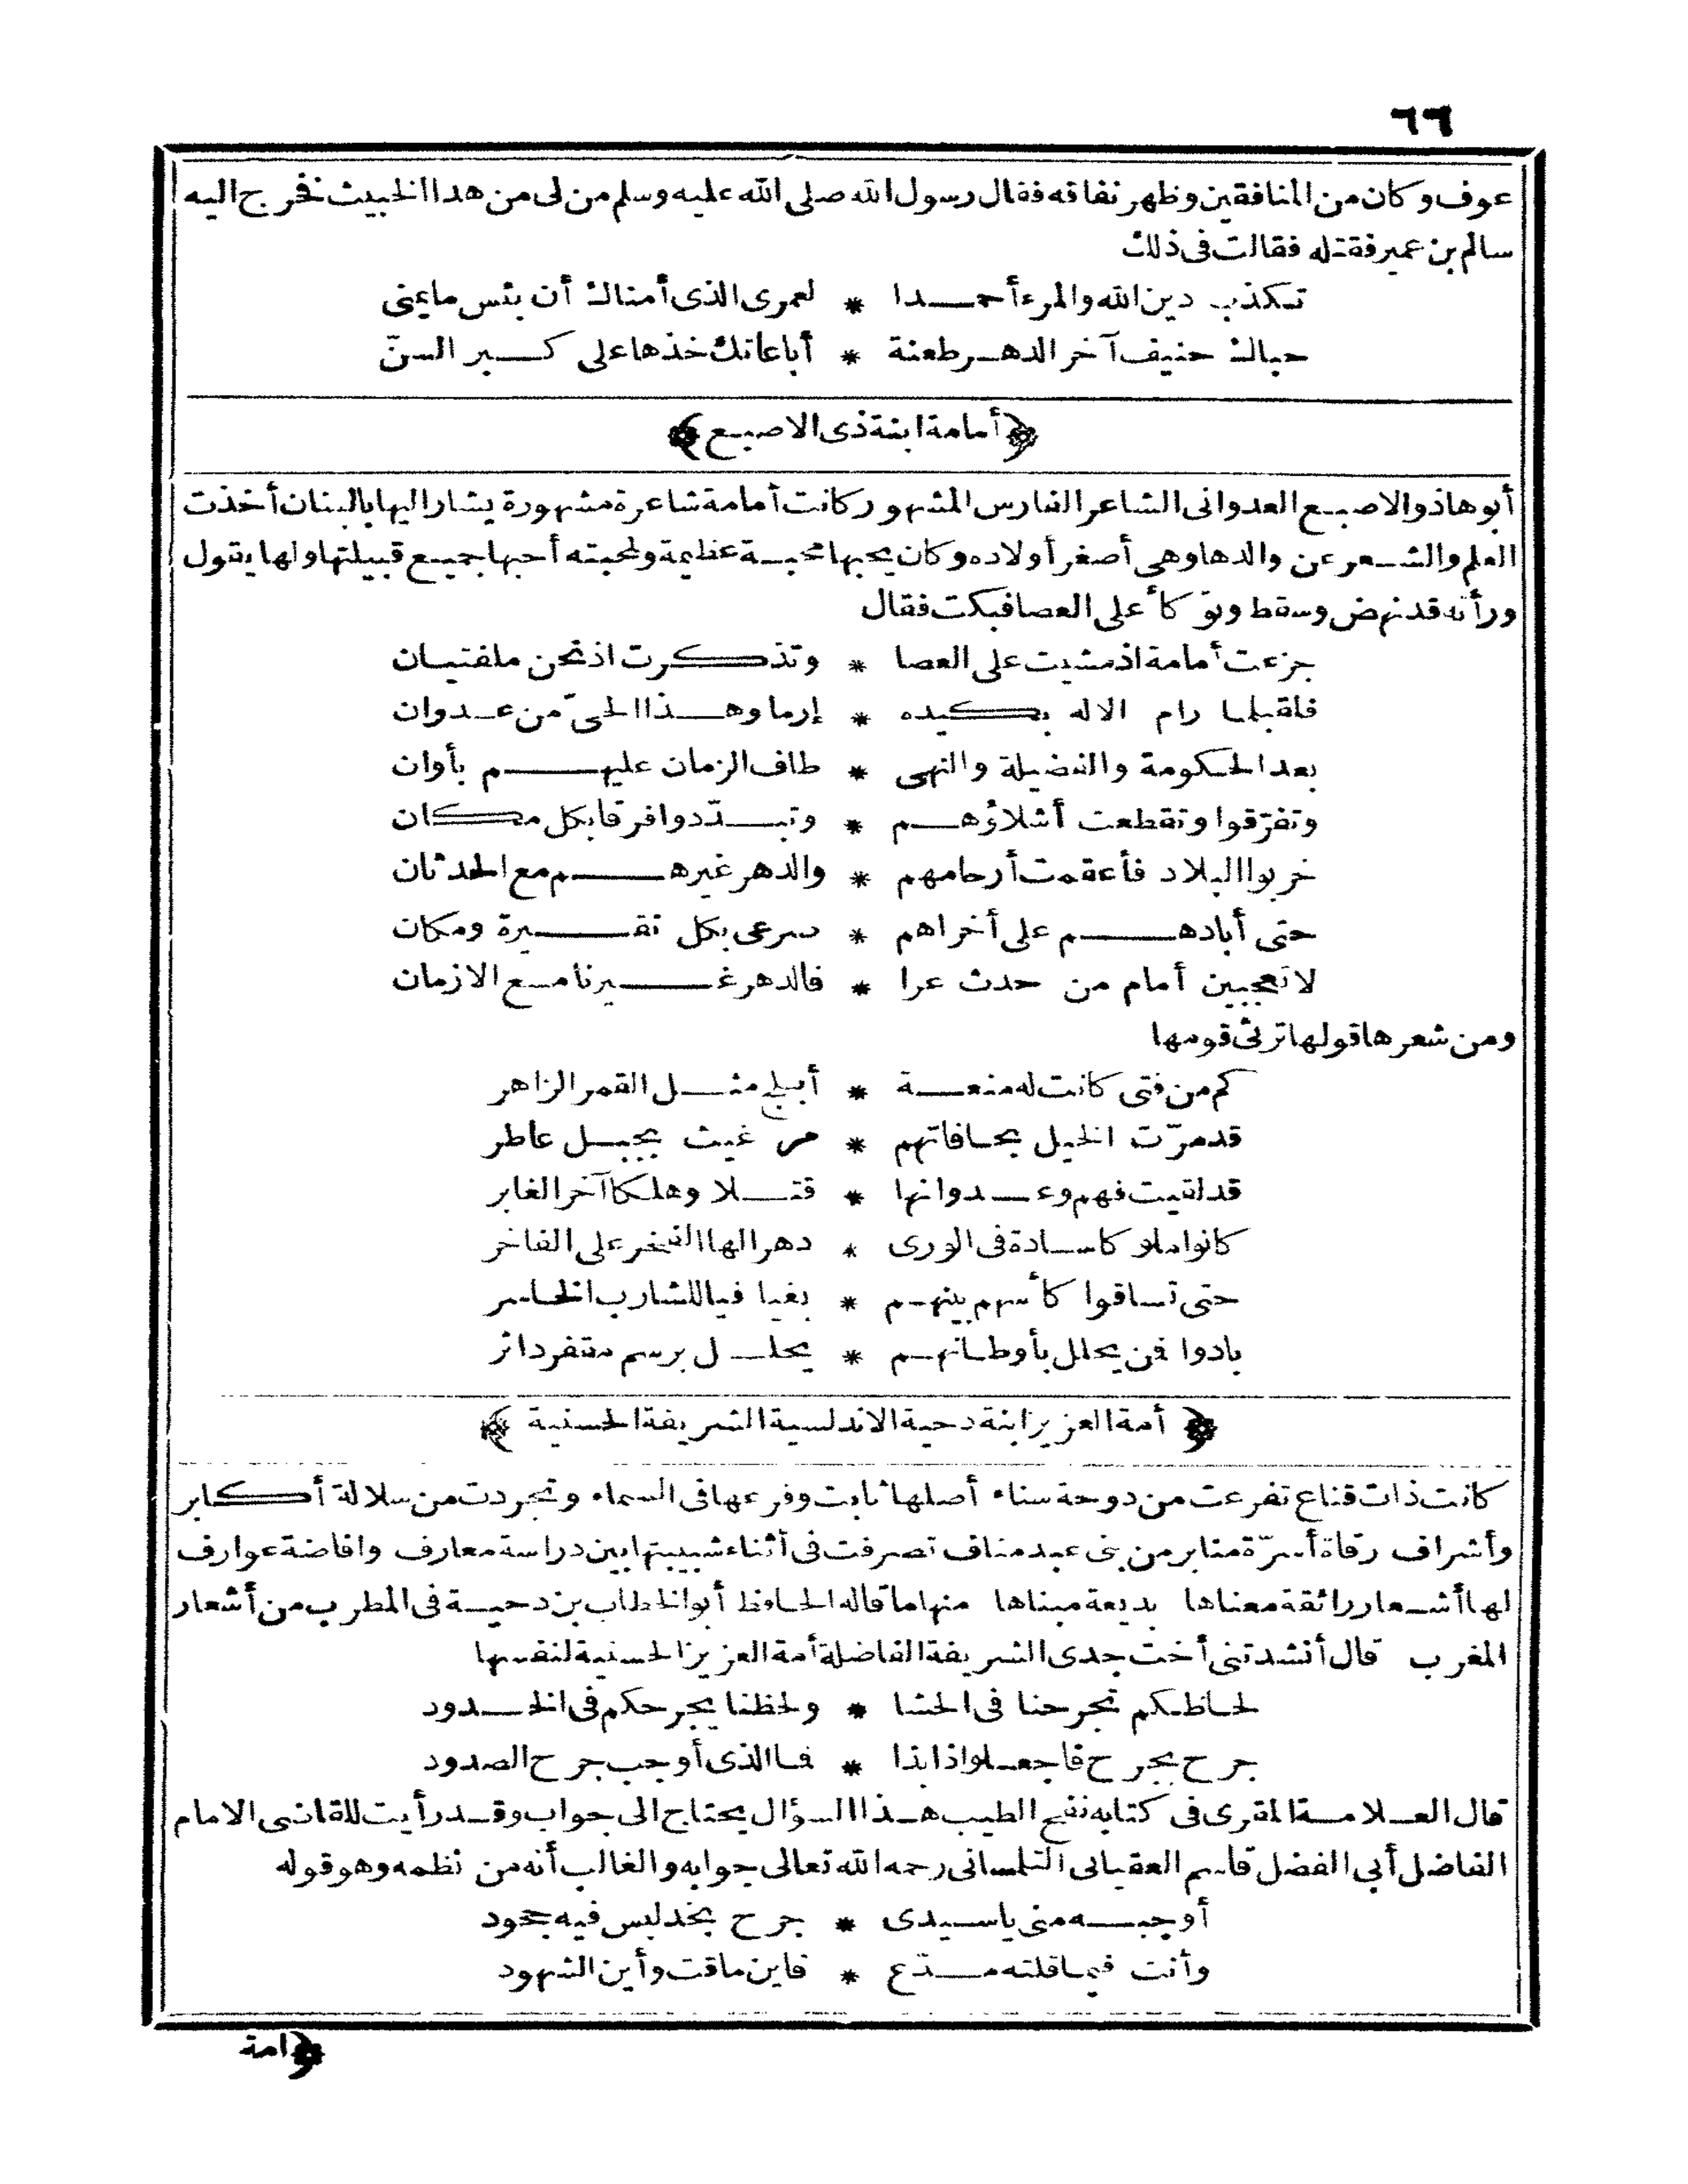 ٦٦
عوف وكان من المنافقين وظهر نفاقه فقال رسول الله صلى الله عليه وسلم من لى من هذا الخبيث نخرج اليه
سالم بن عمير فقتله فقالت فى ذلك
تكذب دين الله والمرء أحمدا * لعمرى الذى أمناك أن بئس ما يمنى
حباك حنيف آخر الدهر طعنة * أبا عاتك خذها على كبر السنّ
﴿أمامة ابنة ذى الاصبع﴾
أبوها ذو الاصبع العدوانى الشاعر الفارس المشهور كانت أمامة شاعرة مشهورة يشار اليها بالبنان أخذت
العلم والشعر عن والدها وهى أصغر أولاده وكان يحبها محبة عظيمة ولمحبته أحبها جميع قبيلتها ولها يقول
ورأته قد نهض وسقط وتوكأ على العصا فبكت فقال
جزعت أمامة اذ مشيت على العصا * وتذكرت اذ نحن ملفتيان
فلقبلما رام الاله بكيده * إرما وهذا الحىّ من عدوان
بعد الحكومة والفضيلة والنهى * طاف الزمان عليهم بأوان
وتفرّقوا وتقطعت أشلاؤهم * وتبدّدوا فرقا بكل مكان
خربوا البلاد فأعقمت أرحامهم * والدهر غيرهم مع الحدثان
حتى أبادهم على أخراهم * صرعى بكل نقيرة ومكان
لا تعجبين أمام من حدث عرا * فالدهر غيرنا مع الازمان
ومن شعرها قولها ترثى قومها
كم من فتى كانت له منعة * أبلج مثل القمر الزاهر
قد مرّت الخيل بحافاتهم * مر غيث بجبل عاطر
قد لقيت فهم وعدوانها * قتلا وهلكا آخر الغابر
كانوا ملوكا سادة فى الورى * دهرا لها الفخر على الفاخر
حتى تساقوا كأسهم بينهم * بغيا فيا للشارب الخاسر
بادوا فمن يحلل بأوطانهم * يحلل برسم مقفر داثر
﴿أمة العزيز ابنة دحية الاندلسية الشريفة الحسنية﴾
كانت ذات قناع تفرعت من دوحة سناء أصلها ثابت وفرعها فى السماء وتجردت من سلالة أكابر
وأشراف رقاة أسرّة منابر من بنى عبد مناف تصرفت فى أثناء شبيبتها بين دراسة معارف وافاضة عوارف
لها أشعار رائقة معناها بديعة مبناها منها ما قاله الحافظ أبو الخطاب بن دحية فى المطرب من أشعار
المغرب قال أنشدتنى أخت جدى الشريفة الفاضلة أمة العزيز الحسنية لنفسها
لحاظكم تجرحنا فى الحشا * ولحظنا يجرحكم فى الخدود
جرح بجرح فاجعلوا ذا بذا * فما الذى أوجب جرح الصدود
قال العلامة المقرى فى كتابه نفح الطيب هذا السؤال يحتاج الى جواب وقد رأيت للقاضى الامام
الفاضل أبي الفضل قاسم العقبانى التلمسانى رحمه الله تعالى جوابه والغالب أنه من نظمه وهو قوله
أوجبه منى يا سيدى * جرح بخد ليس فيه جحود
وأنت فيما قلته مدّع * فاين ما قت وأين الشهود
﴿امة